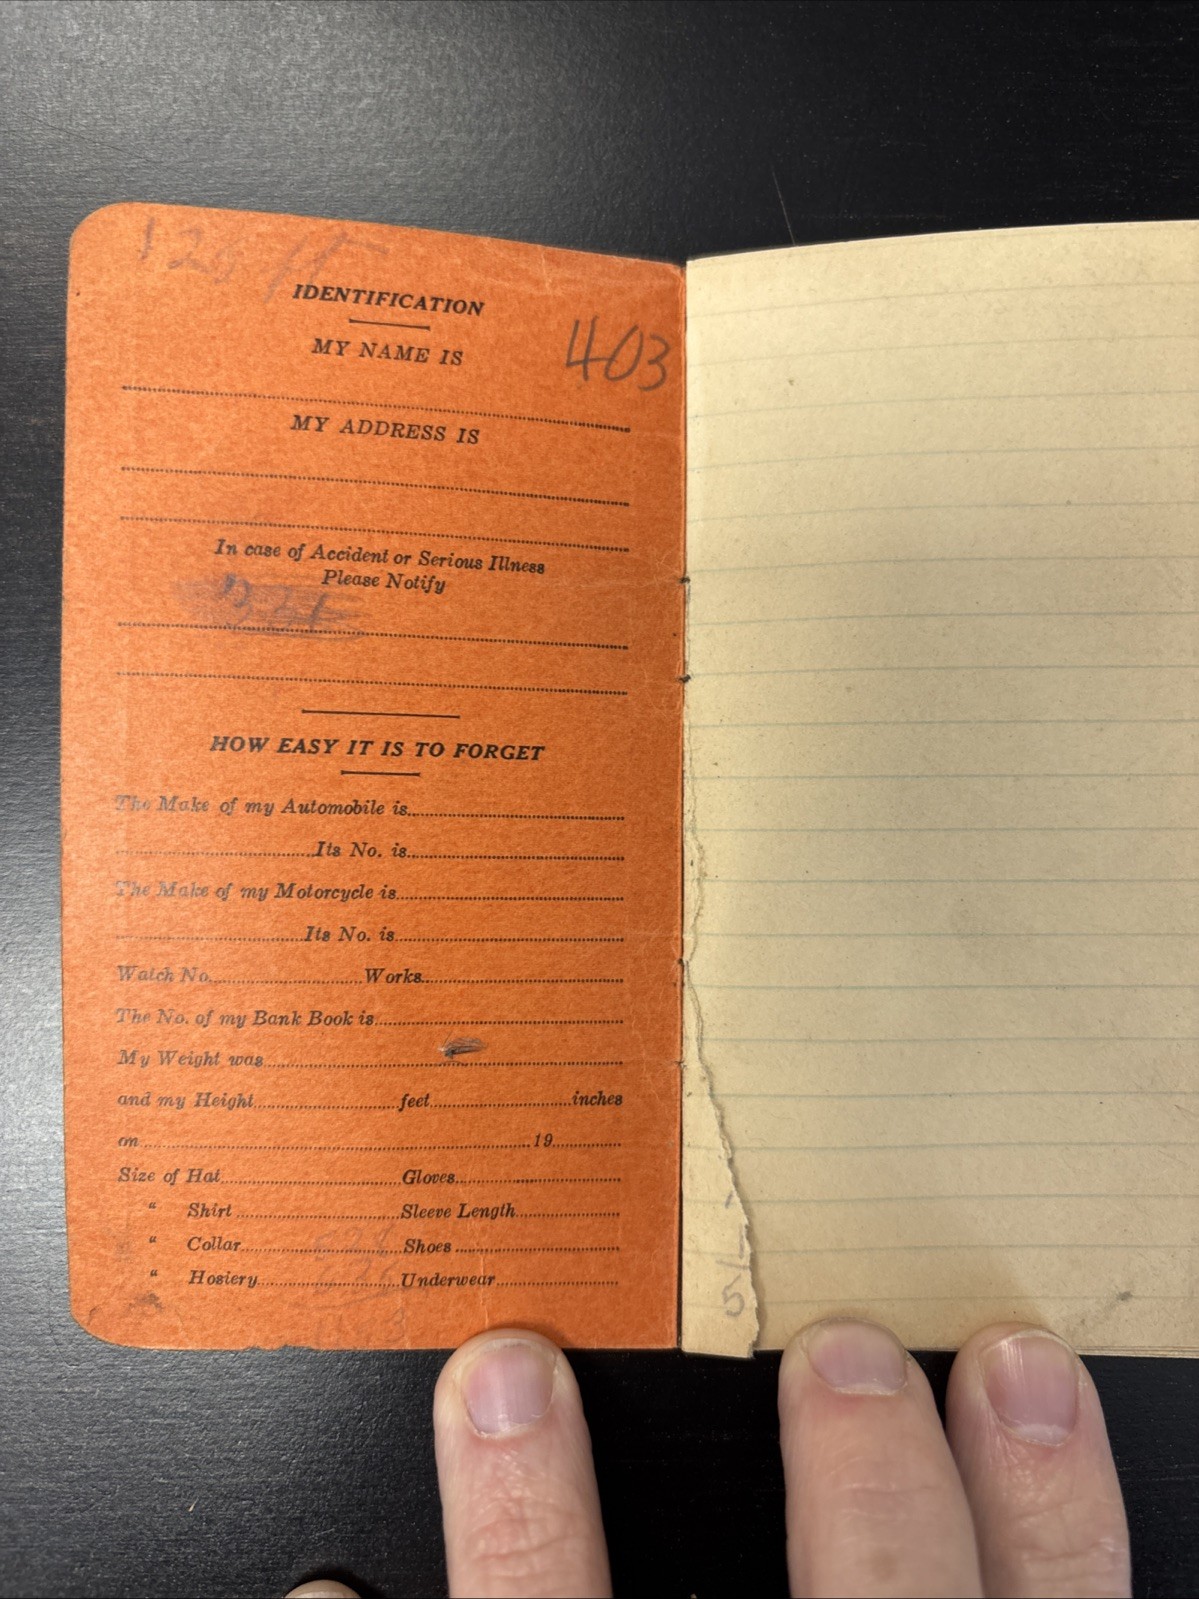 120 ft
IDENTIFICATION
MY NAME IS
403
MY ADDRESS IS
In case of Accident or Serious Illness
Please Notify
HOW EASY IT IS TO FORGET
The Make of my Automobile is
Its No. is
The Make of my Motorcycle is
Its No. is
Watch No. Works
The No. of my Bank Book is
My Weight was
and my Height feet inches
on 19
Size of Hat Gloves
" Shirt Sleeve Length
" Collar Shoes
" Hosiery Underwear